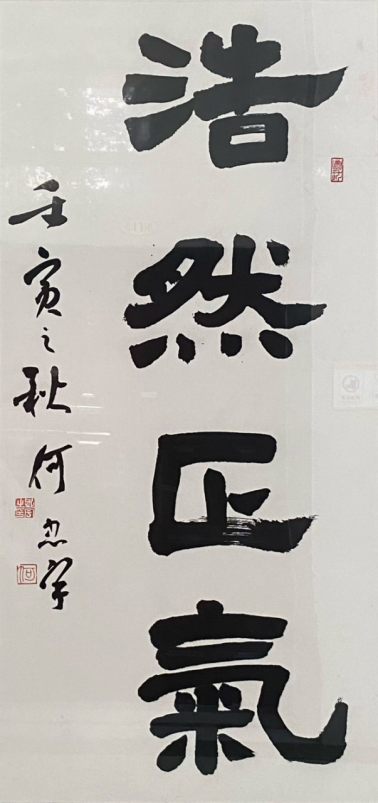 浩然正氣
壬寅之秋 何忠宇